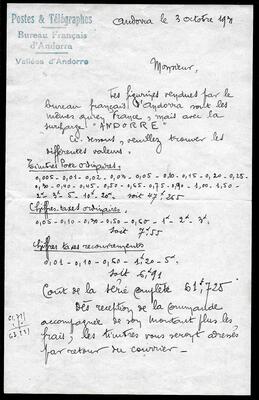 Postes & Télégraphes
Bureau Français
d'Andorra
Vallées d'Andorre
Andorra le 3 octobre 193
Monsieur,
Les figurines vendues par le
bureau français d'Andorra sont les
mêmes qu'en France, mais avec la
surcharge "ANDORRE"
Ci-dessous, veuillez trouver les
différentes valeurs.
Timbres Poste ordinaires.
0,005 - 0,01 - 0,02 - 0,03 - 0,05 - 0,10 - 0,15 - 0,20 - 0,25 -
0,30 - 0,40 - 0,45 - 0,50 - 0,65 - 0,75 - 0,90 - 1,00 - 1,50 -
2f - 3f - 5f - 10f - 20f soit 47f265
Chiffres-taxes ordinaires.
0,05 - 0,10 - 0,30 - 0,50 - 0,60 - 1f - 2f - 3f
soit 7f55
Chiffres taxes recouvrements
0,01 - 0,10 - 0,60 - 1f20 - 5f
soit 6f91
Coût de la série complète 61f725
Dès reception de la commande
accompagnée de son montant plus les
frais, les timbres vous seront adressés
par retour du courrier -